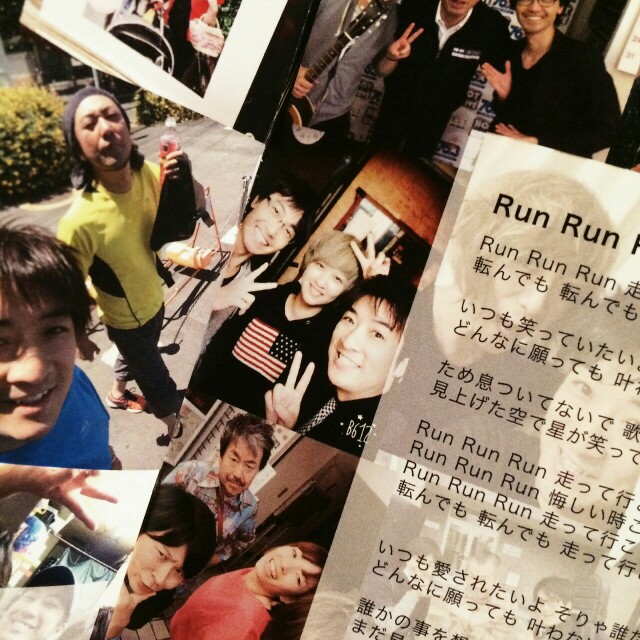 Run Run
Run Run Run 走
転んでも 転んでも
いつも笑っていたい
どんなに願っても 叶
ため息ついてないで 歌
見上げた空で星が笑って
Run Run Run 走って行
Run Run Run 悔しい時
Run Run Run 走って行こ
転んでも 転んでも 走って行
いつも愛されたいよ そりゃ誰
どんなに願っても 叶わ
誰かの事を
まだ
B612